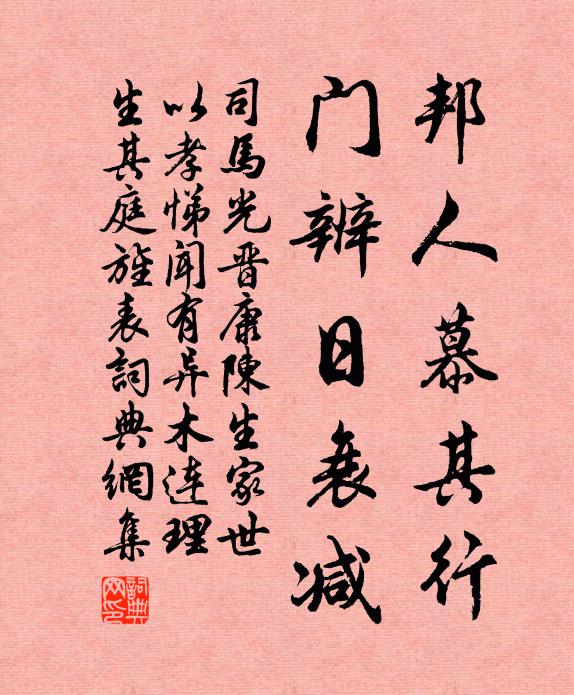 邦人慕其行
門辨日衰减
司馬光晋康陳生家世
以孝悌聞有异木連理
生其庭旌表詞典網集
詞典网印